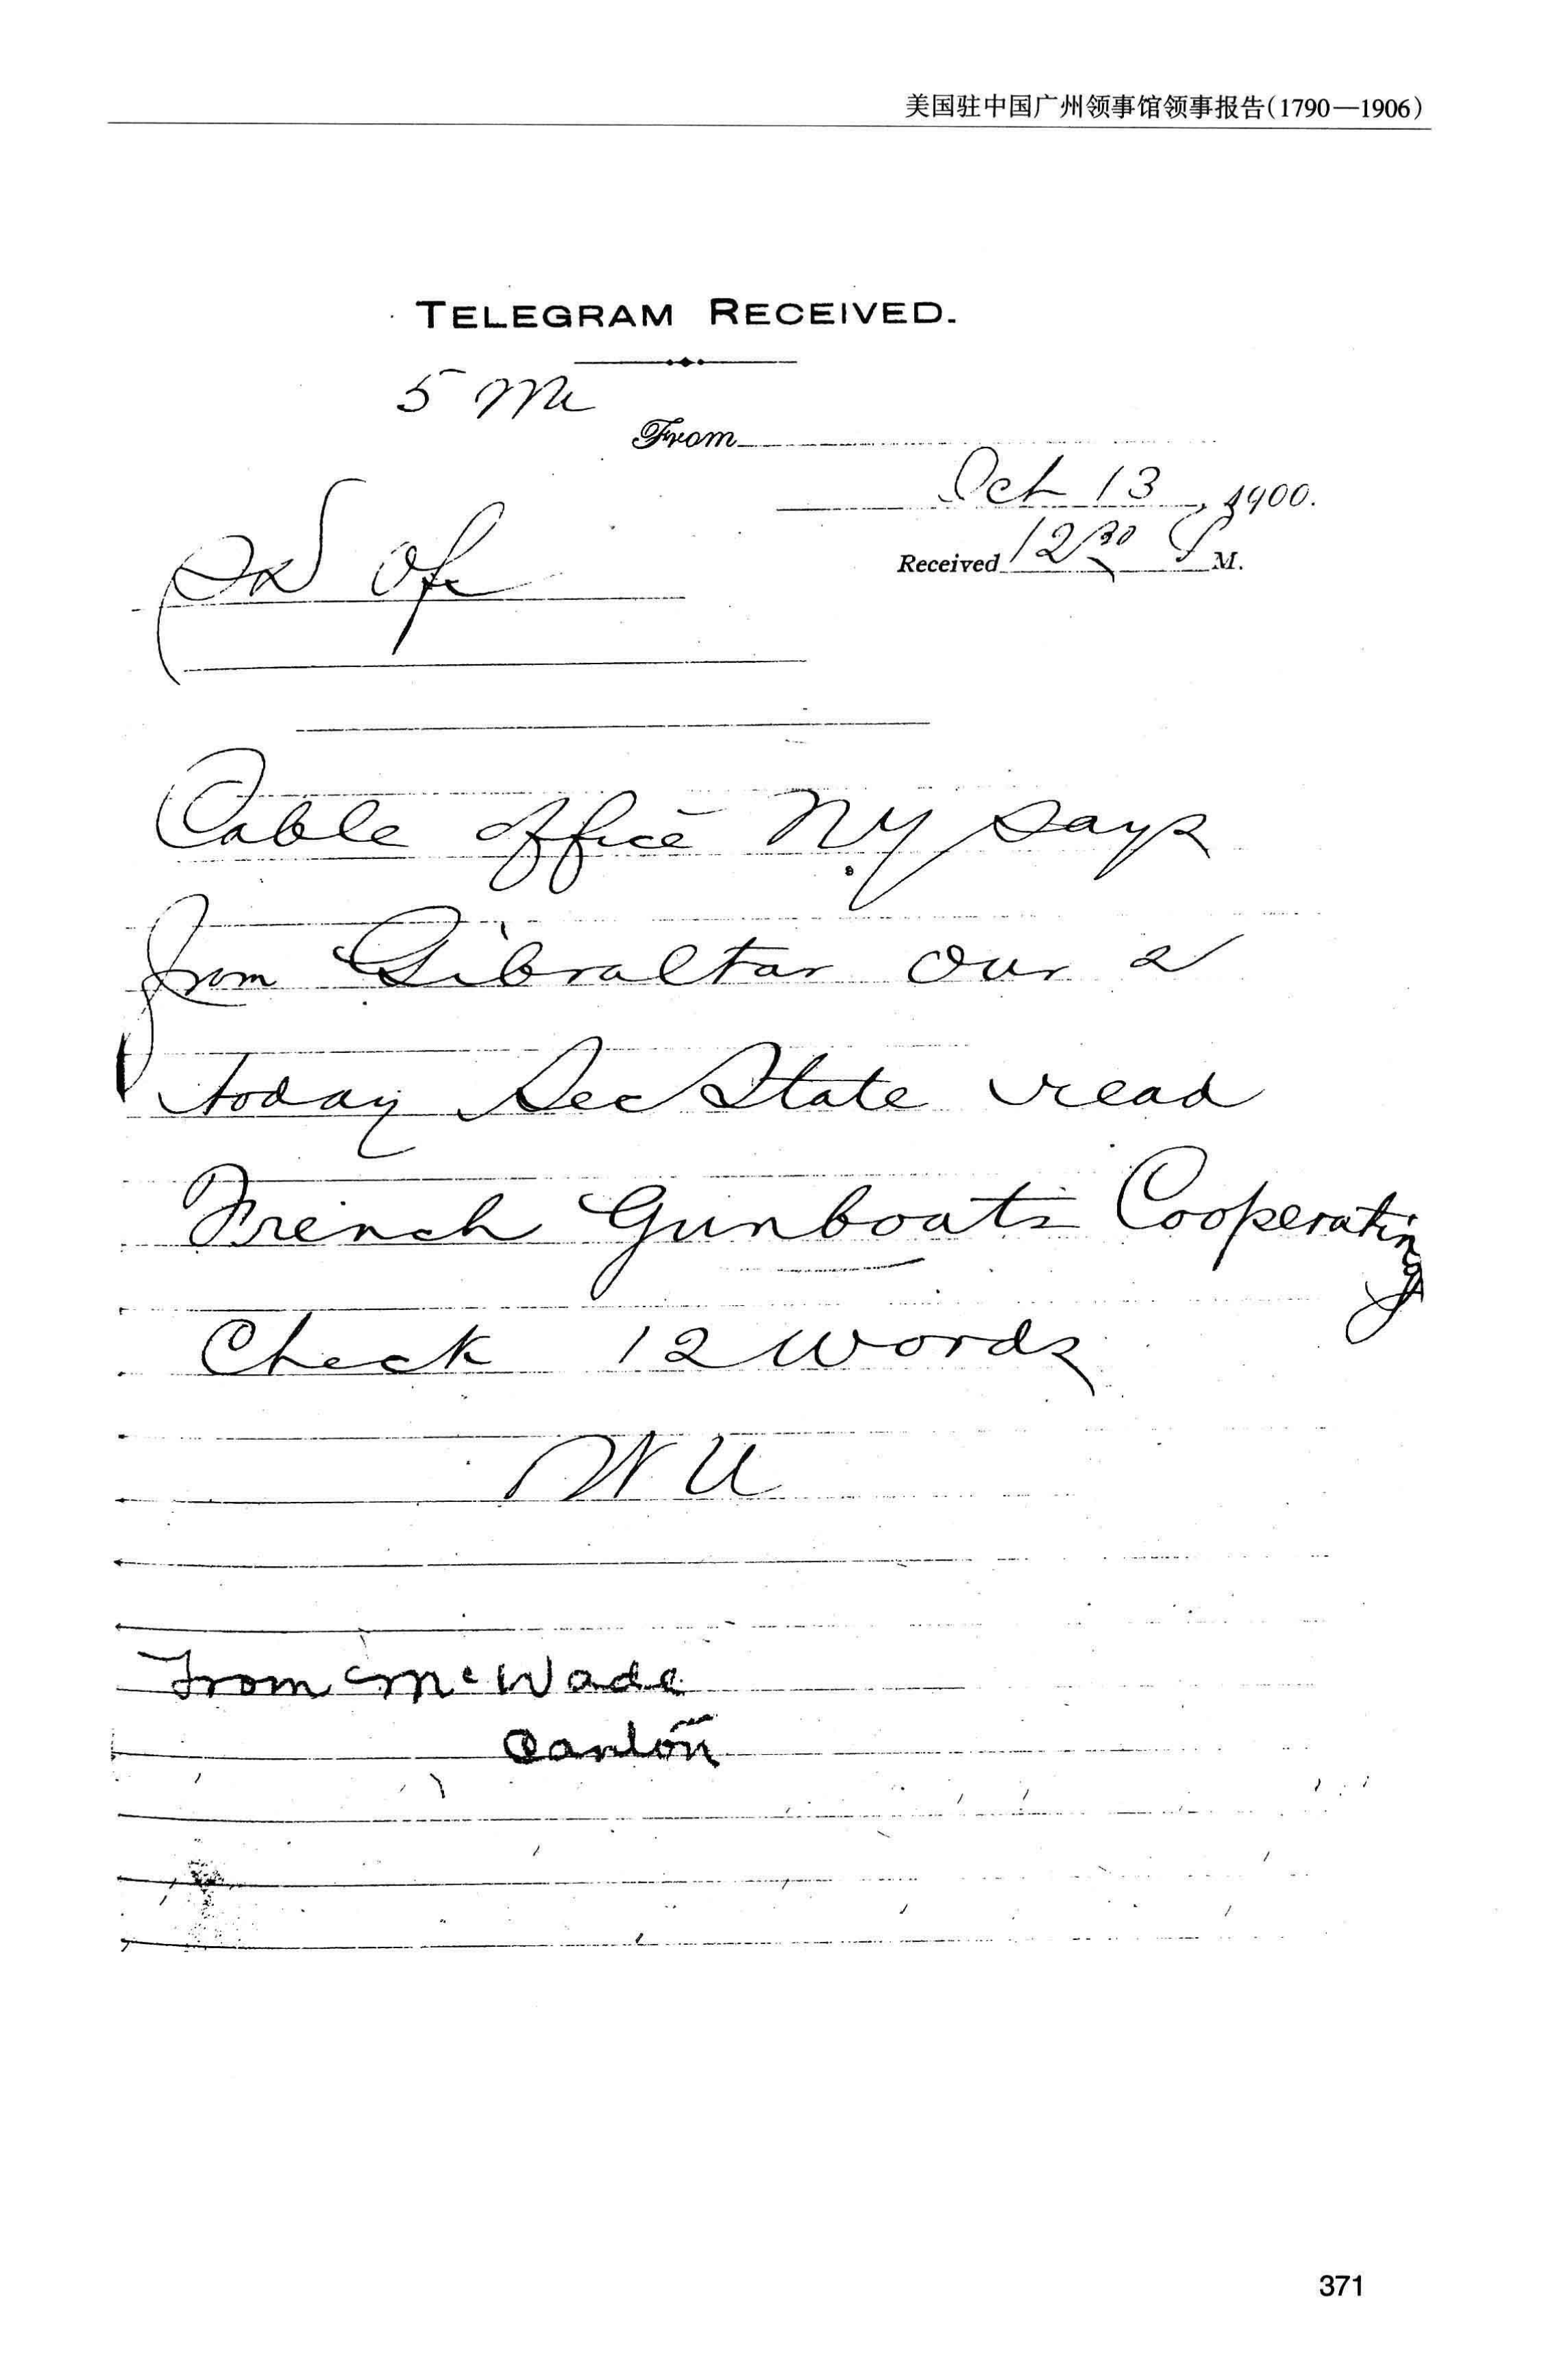 美国驻中国广州领事馆领事报告(1790—1906)
TELEGRAM RECEIVED.
From
Oct 13, 1900.
Received 12 30 P M.
Cable office NY says
from Gibraltar our 2
today Sec State read
French Gunboats Cooperating
Check 12 words
W U
From McWade
Canton
371